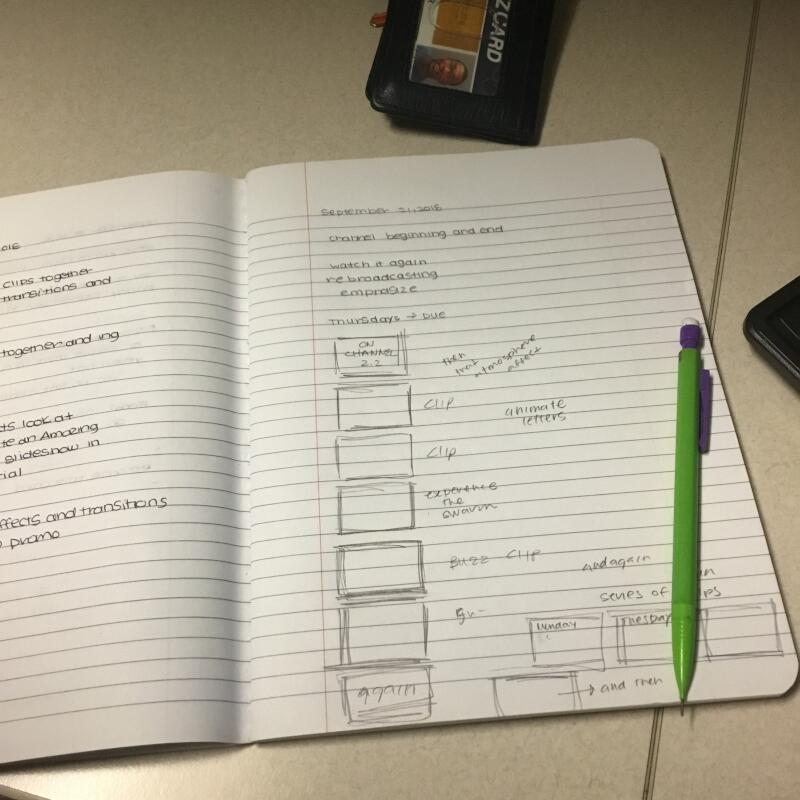 ZZCARD
018
clips together
transitions and
together and ing
ts look at
te an Amazing
slideshow in
ial
ffects and transitions
promo
September 21, 2018
channel beginning and end
watch it again
rebroadcasting
emphasize
Thursdays → Due
ON
CHANNEL
2.2
then
that atmosphere
affect
clip
animate
letters
clip
experience
the
swarm
Buzz clip
and again
series of
again
Tuesday
→ and then